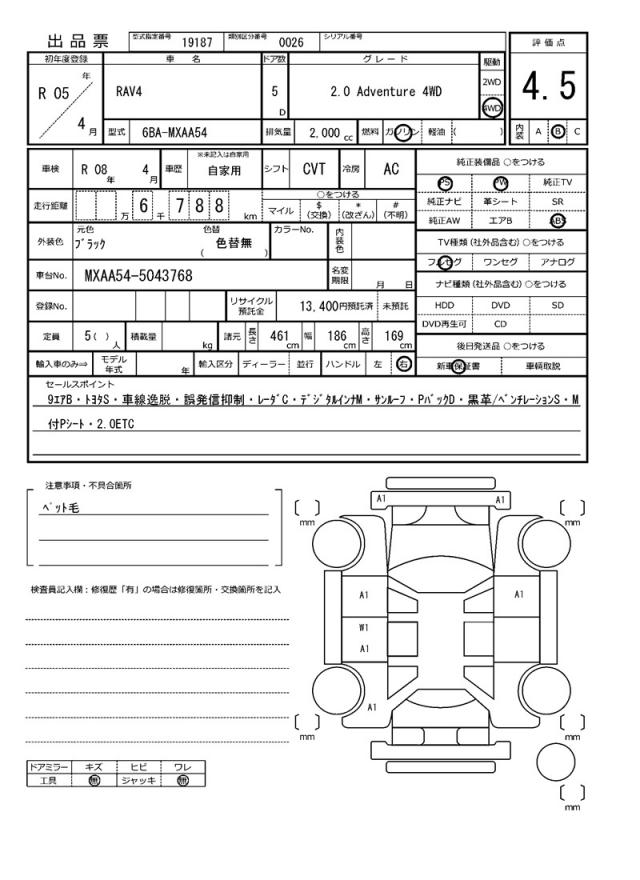 出品票 型式指定番号 19187 類別区分番号 0026 シリアル番号
評価点
4.5
初年度登録 車名 ドア数 グレード 駆動
R 05 年 4 月
RAV4 5 D 2.0 Adventure 4WD
2WD
4WD
型式 6BA-MXAA54 排気量 2,000 cc 燃料 ガソリン 軽油 ( )
内装 A B C
車検 R 08 年 4 月 車歴 ※未記入は自家用 自家用 シフト CVT 冷房 AC
走行距離 万 6 千 7 8 8 km
○をつける
マイル $(交換) *(改ざん) #(不明)
外装色 元色 ブラック 色替 色替無 ( ) カラーNo. 内装色
車台No. MXAA54-5043768 名変期限 月 日
登録No. リサイクル預託金 13,400円預託済 未預託
定員 5( ) 人 積載量 kg 諸元 長さ 461 cm 幅 186 cm 高さ 169 cm
輸入車のみ⇒ モデル年式 年 輸入区分 ディーラー 並行 ハンドル 左 右
純正装備品 ○をつける
PS PW 純正TV
純正ナビ 革シート SR
純正AW エアB ABS
TV種類(社外品含む) ○をつける
フルセグ ワンセグ アナログ
ナビ種類(社外品含む) ○をつける
HDD DVD SD
DVD再生可 CD
後日発送品 ○をつける
新車保証書 車輌取説
セールスポイント
9エアB・トヨタS・車線逸脱・誤発信抑制・レーダC・デジタルインナM・サンルーフ・PバックD・黒革/ベンチレーションS・M
付Pシート・2.0ETC
注意事項・不具合箇所
ペット毛
検査員記入欄:修復歴「有」の場合は修復箇所・交換箇所を記入
A1 A1
mm mm
A1 A1
W1
A1
A1
mm mm
mm
ドアミラー キズ ヒビ ワレ
工具 無 ジャッキ 無